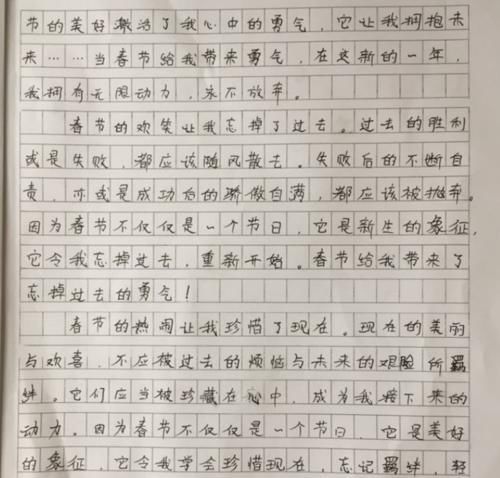 节的美好激活了我心中的勇气，它让我拥抱未
来……当春节给我带来勇气，在这新的一年，
我拥有无限动力，永不放弃。
春节的欢笑让我忘掉了过去。过去的胜利
或是失败，都应该随风散去。失败后的不断自
责，亦或是成功后的骄傲自满，都应该被抛弃。
因为春节不仅仅是一个节日，它是新生的象征，
它令我忘掉过去，重新开始。春节给我带来了
忘掉过去的勇气！
春节的热闹让我珍惜了现在。现在的美丽
与欢喜，不应被过去的烦恼与未来的艰险所羁
绊。它们应当被珍藏在心中，成为我接下来的
动力。因为春节不仅仅是一个节日，它是美好
的象征，它令我学会珍惜现在，忘记羁绊，轻